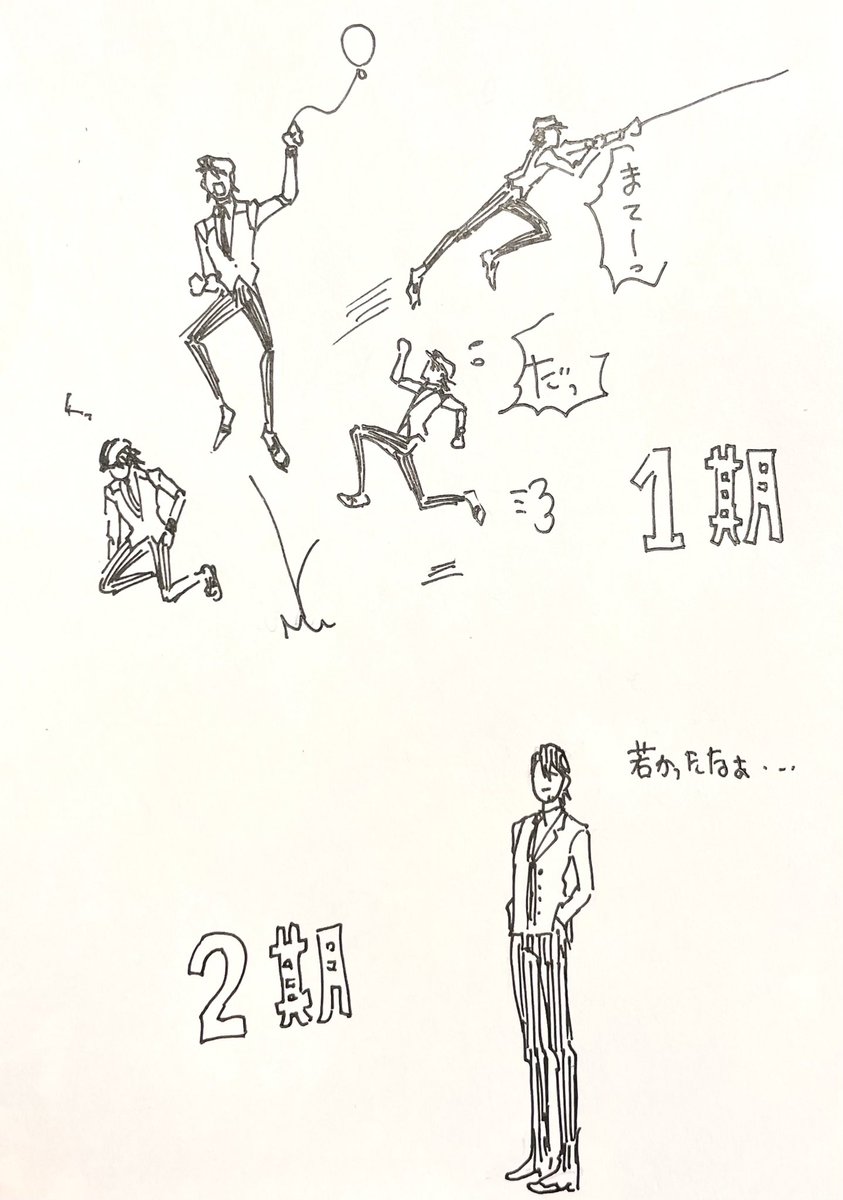 まてーっ
だっ
トッ
1期
若かったなぁ・・・
2期